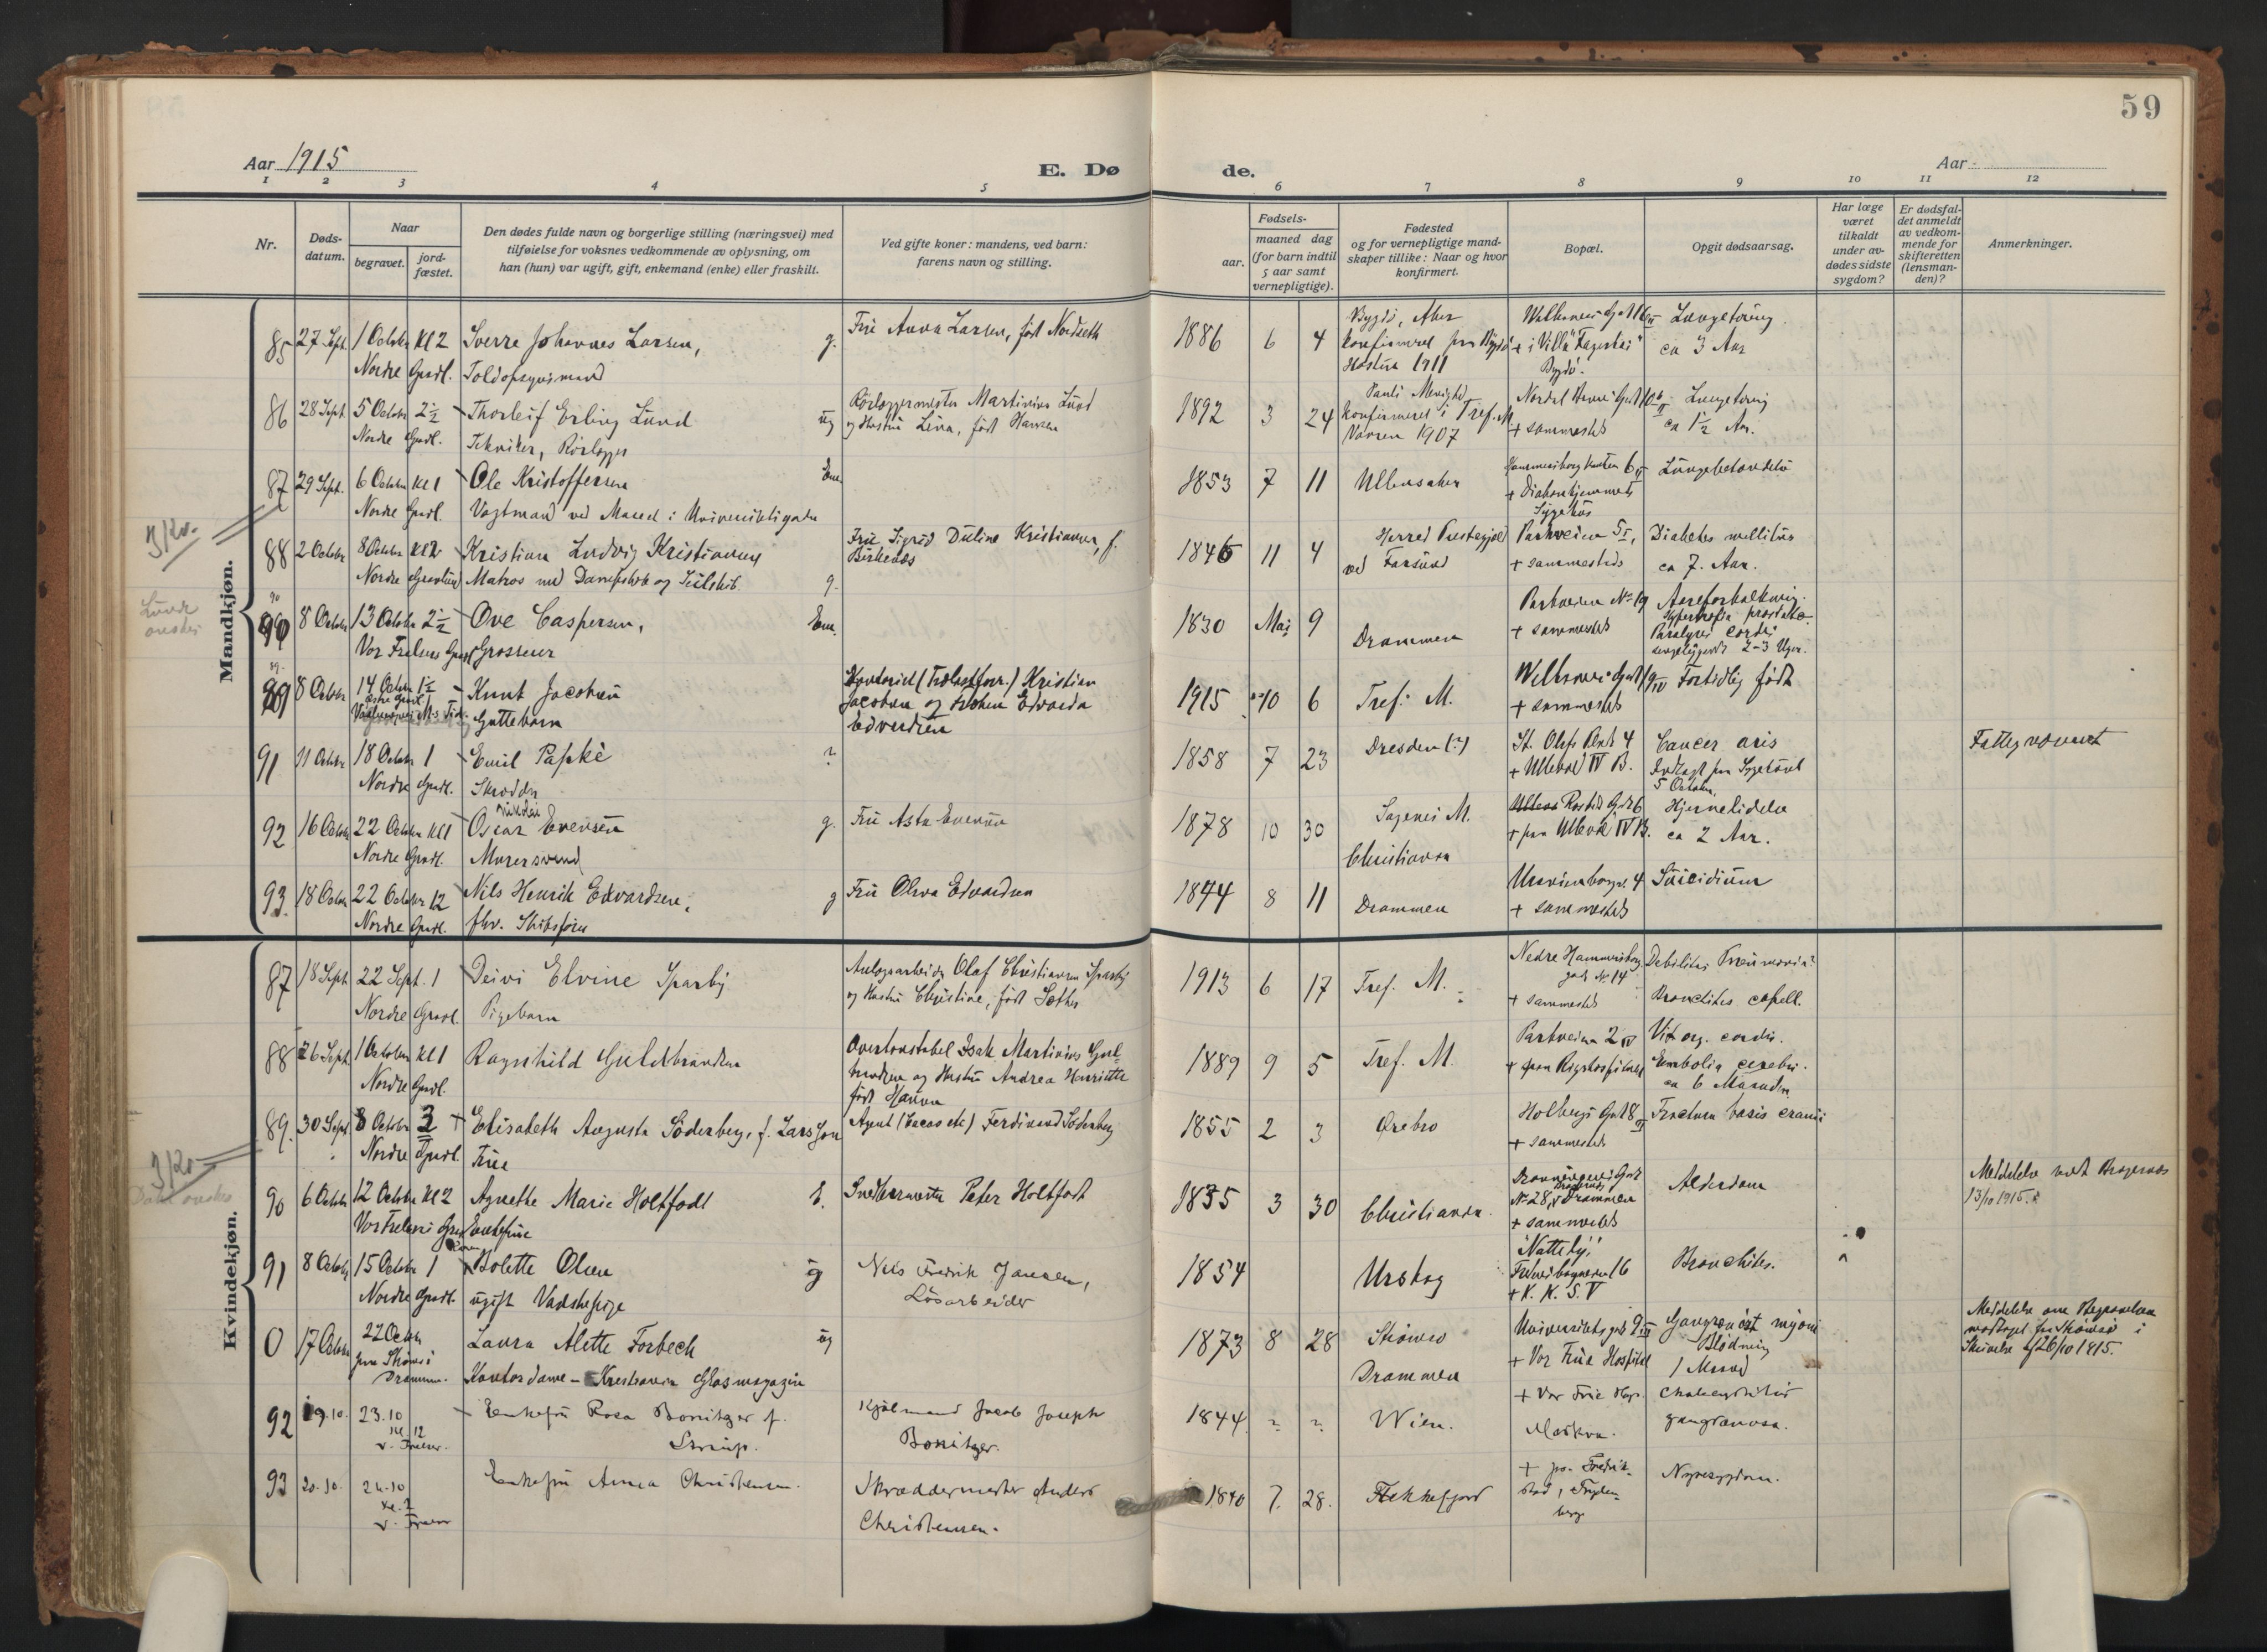 59
Aar 1915
E. Dø
de.
Aar
1 2 3 4 5 6 7 8 9 10 11 12
Nr.
Døds-
datum.
Naar
begravet.
jord-
fæstet.
Den dødes fulde navn og borgerlige stilling (næringsvei) med
tilføielse for voksnes vedkommende av oplysning, om
han (hun) var ugift, gift, enkemand (enke) eller fraskilt.
Ved gifte koner: mandens, ved barn:
farens navn og stilling.
Fødsels-
aar.
maaned dag
(for barn indtil
5 aar samt
vernepligtige).
Fødested
og for vernepligtige mand-
skaper tillike: Naar og hvor
konfirmert.
Bopæl.
Opgit dødsaarsag.
Har læge
været
tilkaldt
under av-
dødes sidste
sygdom?
Er dødsfal-
det anmeldt
av vedkom-
mende for
skifteretten
(lensman-
den)?
Anmerkninger.
Mandkjøn.
85 27 Sept. 1 October Kl 2 Sverre Johannes Larsen, g. Fru Anna Larsen, født Nordseth 1886 6 4 Bygdø, Aker
Nordre Gravl. Toldopsynsmand
konfirmeret fra Bygdø
+ i Villa "Fagerhei"
Bygdø.
Høsten 1911
Lungetæring
ca 3 Aar
86 28 Sept. 5 October 2½ Thorleif Erling Lund ug Rørlæggermester Martinius Lund 1892 3 24
Nordre Gravl. Tekniker, Rørlegger
og Hustru Lina, født Hansen
konfirmeret i Tref. M.
Vaaren 1907
+ sammesteds
Lungetæring
ca 1½ Aar.
87 29 Sept. 6 October Kl 1 Ole Kristoffersen Enk. 1853 7 11 Ullensaker
Nordre Gravl. Vagtmand ved Museet i Universitetsgaten
Hammersborg
+ Diakonhjemmets
Sygehus
Lungebetændelse
88 2 October 8 October Kl 2 Kristian Ludvig Kristiansen Fru Sigrid Duline Kristiansen, f.
Birkenæs
Nordre Gravlund Matros med Dampskib og Seilskib g.
1846 11 4 Herred Prestegjeld
ved Farsund
Parkveien 5 I,
+ sammesteds
Diabetes mellitus
ca 7. Aar.
90 8 October 13 October 2½ Ove Caspersen, Enk. 1830 Mai 9 Drammen
Vor Frelsers Gravl. Grosserer
Parkveien No 19
+ sammesteds
Aareforkalkning.
Hypertrofia prostatae
Paralysis cordis
sengeliggende 2-3 Uger.
89 8 October 14 October 1½ Knut Jacobsen
Østre Gravl.
Guttebarn
Kristian
Jacobsen og Hustru Edvarda
Edvardsen
1915 10 6 Tref. M.
+ sammesteds
Fortidlig født
91 11 October 18 October 1 Emil Papke ? 1858 7 23 Dresden (?)
Nordre Gravl. Skrædder
St. Olafs Plads 4
+ Ullevaal IV B.
Cancer oris
Indlagt paa Sygehuset
5 October.
Fattigvæsenet
92 16 October 22 October Kl 1 Oscar Nikolai Evensen g. Fru Asta Evensen 1878 10 30 Sagenes M.
Nordre Gravl. Murersvend
Christiania
+ paa Ullevaal IV B.
Hjernelidelse
ca 2 Aar.
93. 18 October 22 October 12 Nils Henrik Edvardsen, g Fru Olava Edvardsen 1844 8 11 Drammen
Nordre Gravl. fhv. Skibsfører
Uranienborgv. 4
+ sammesteds
Suicidium
Kvindekjøn.
87 18 Sept. 22 Sept. 1 Deivi Elvine Sparby Olaf Christiansen Sparby 1913 6 17 Tref. M.
Nordre Gravl. Pigebarn
og Hustru Christine, født Sæther
Nedre Hammersborg
gade No 14
+ sammesteds
Debilitas Pneumonia?
Bronchitis capill.
88 26 Sept. 1 October Kl 1 Ragnhild Guldbrandsen Overkonstabel Isak Martinius Gul-
brandsen og Hustru Andrea Henriette
født Hansen
Nordre Gravl.
1889 9 5 Tref. M.
Parkveien 2 IV
+ paa Rigshospitalet
Vit. org. cordis.
Embolia cerebri.
ca 6 Maaneder
89. 30 Sept 8 October 3 Elisabeth Augusta Söderberg, f. Larsson Agent (Cacao etc) Ferdinand Söderberg 1855 2 3 Ørebro
Nordre Gravl. Frue
Holbergs Gade 18
+ sammesteds
Fractura basis cranii
90 6 October 12 October Kl 2 Agnethe Marie Holtfodt E. Peter Holtfodt 1835 3 30 Christiania.
Vor Frelsers Grav Enkefrue
No 28, Drammen
+ sammesteds
Alderdom
Meddelelse Bragernæs
13/10 1915.
91 8 October 15 October 1 Bolette Olsen g Nils Fredrik Jansen,
Løsarbeider
Nordre Gravl. ugift Vaskepige
1854 Urskog
"Natteby,"
16
+ K. K. S. V
Bronchites.
0 17 October 22 October Laura Alette Forbech ug 1873 8 28 Skönes
Drammen
Drammen. Kontordame - Kristiania Glasmagazin
Universitetsgade 9 III
+ Vor Frue Hospital
Blødning
1 Maaned
Meddelelse om Begravelsen
modtaget fra i
Skrivelse af 26/10 1915.
92 19.10. 23.10 Enkefru Rosa Bonitzer f.
Kl. 12
v. Frelser.
Kjøbmand Jacob Joseph
Bonitzer.
1844 ? ? Wien.
+ Vor Frue Hosp.
Moskva.
gangrænosa.
93 20.10. 24.10 Enkefru Anna Christensen.
Kl. 2
v. Frelser
Skræddermester Anders
Christensen.
1840 7. 28. Flekkefjord
+ paa Fredrik-
stad, Fryden-
berg
Nyresygdom.